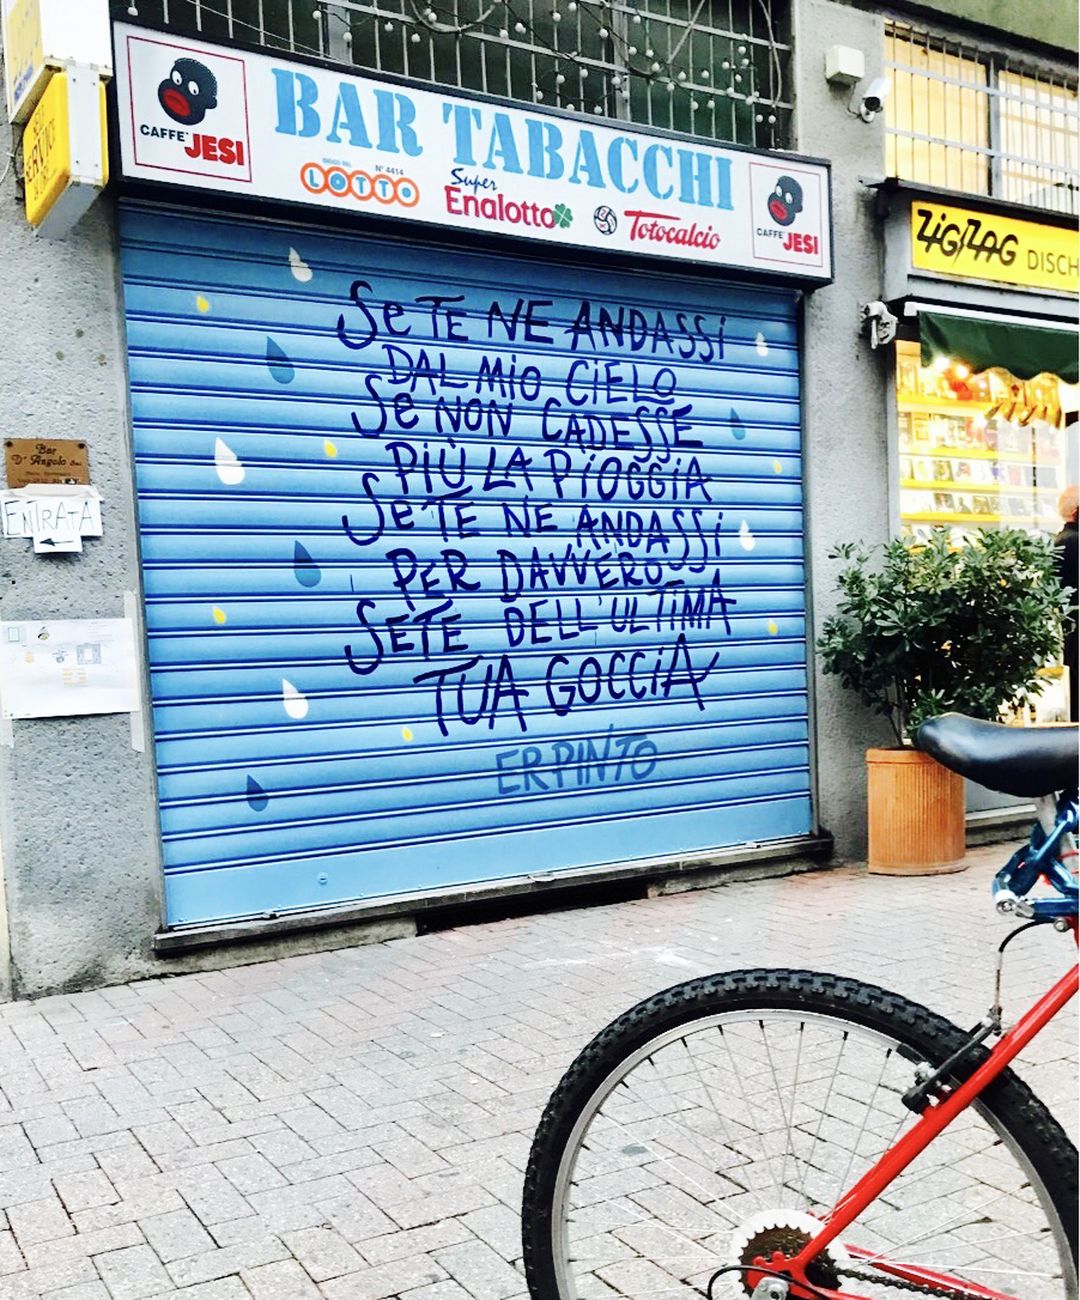 BAR TABACCHI
CAFFE' JESI
GIOCO DEL LOTTO N° 4414
Super Enalotto
Totocalcio
CAFFE' JESI
ZIG/ZAG DISCH
SERVIZI
Bar
D'Angelo snc
ENTRATA
SE TE NE ANDASSI
DAL MIO CIELO
SE NON CADESSE
PIÙ LA PIOGGIA
SE TE NE ANDASSI
PER DAVVERO
SETE DELL'ULTIMA
TUA GOCCIA
ER PINTO